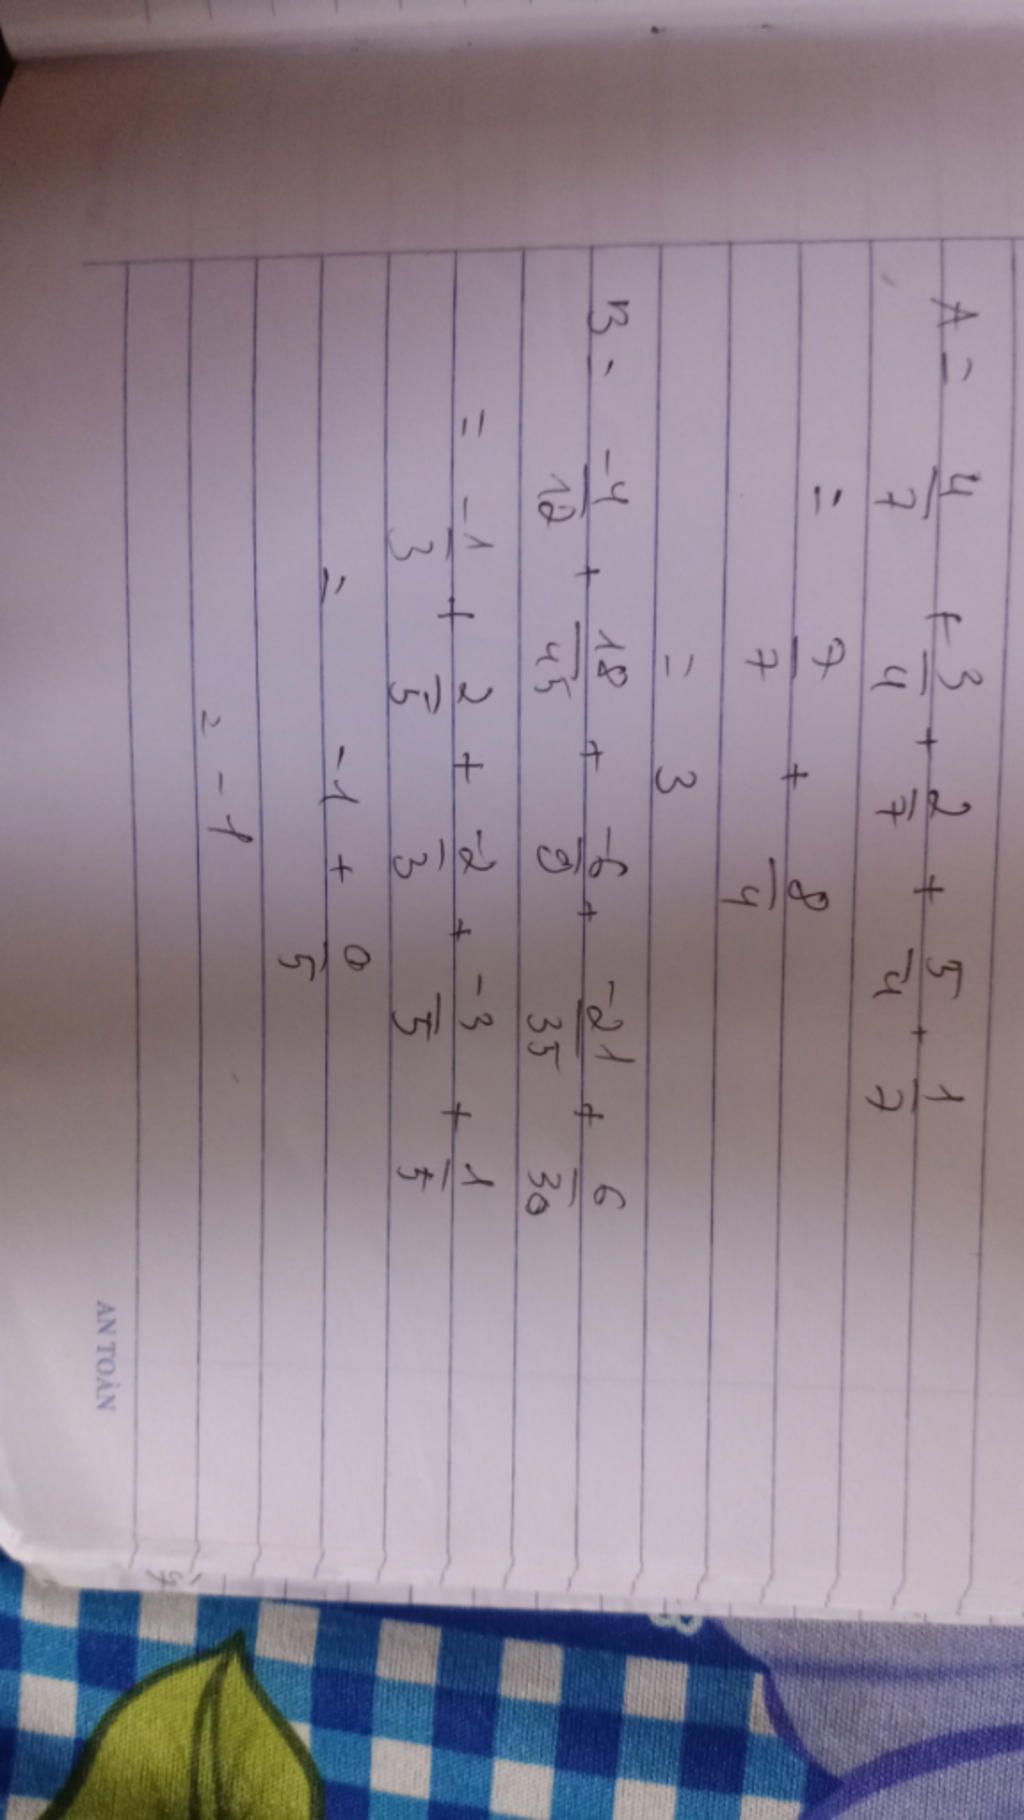 A = 4/7 + 3/4 + 2/7 + 5/4 + 1/7
= 7/7 + 8/4
= 3
B = -4/12 + 18/45 + -6/9 + -21/35 + 6/30
= -1/3 + 2/5 + -2/3 + -3/5 + 1/5
= -1 + 0/5
= -1
AN TOÀN